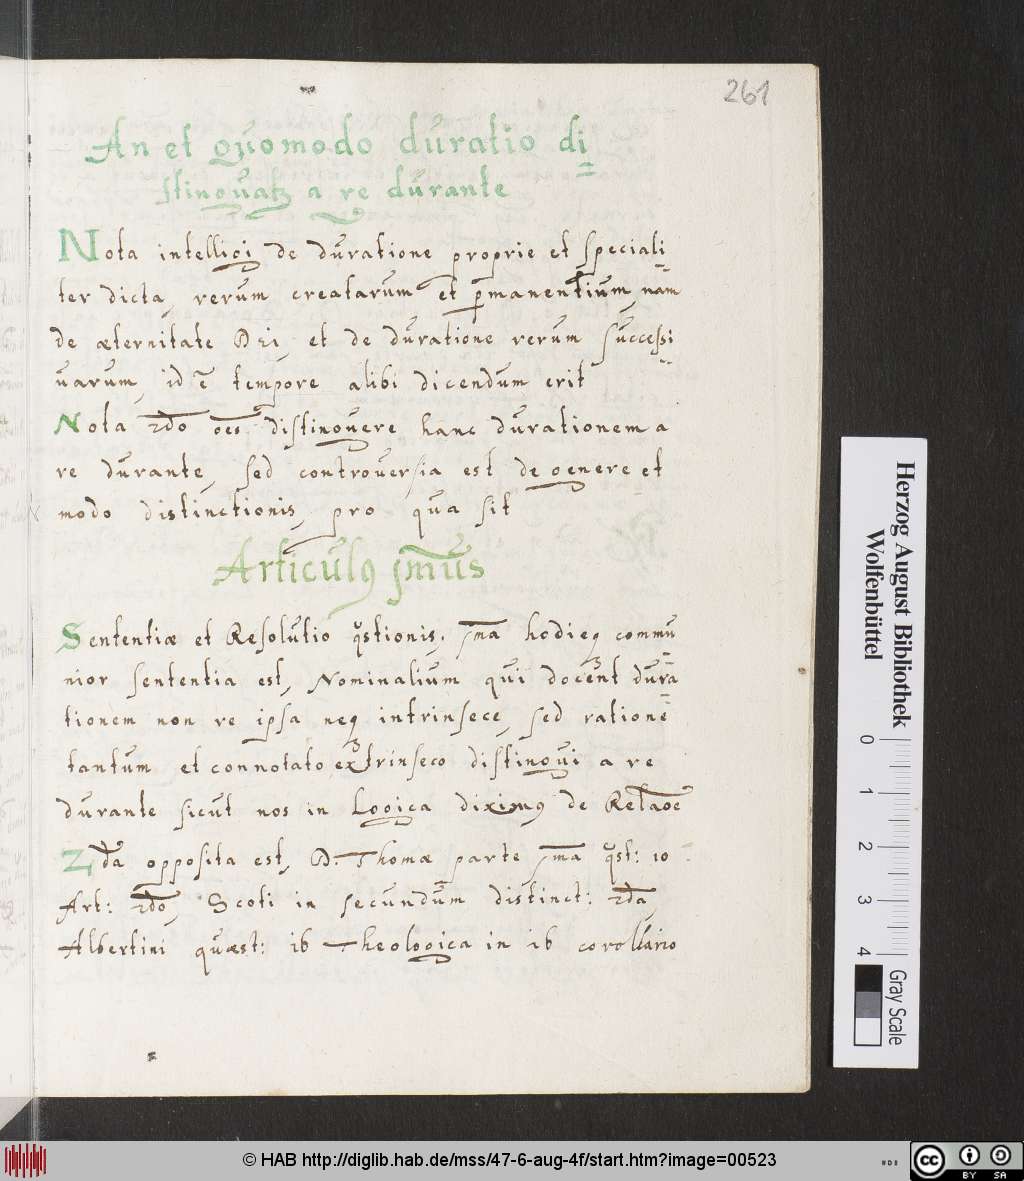 261
An et quomodo duratio di=
stinguatz a re durante
Nota intelligi de duratione proprie et speciali=
ter dicta, rerum creatarum et pmanentium, nam
de æternitate DEi, et de duratione rerum successi=
uarum, id ē tempore alibi dicendum erit
Nota 2do oēs distinguere hanc durationem a
re durante, sed controuersia est de genere et
modo distinctionis, pro qua sit
Articulꝰ pmus
Sententiæ et Resolutio qstionis. pma hodieq commu=
nior sententia est, Nominalium qui docent dura=
tionem non re ipsa neq intrinsece, sed ratione
tantum et connotato extrinseco distingui a re
durante sicut nos in Logica diximꝰ de Relaoe
2da opposita est, D. Thomæ parte pma qst: 10
Art: 2do, Scoti in secundum distinct: 2da
Albertini quæst: ib Theologica in ib corollario
Herzog August Bibliothek
Wolfenbüttel
0 1 2 3 4
Gray Scale
© HAB http://diglib.hab.de/mss/47-6-aug-4f/start.htm?image=00523
cc BY SA